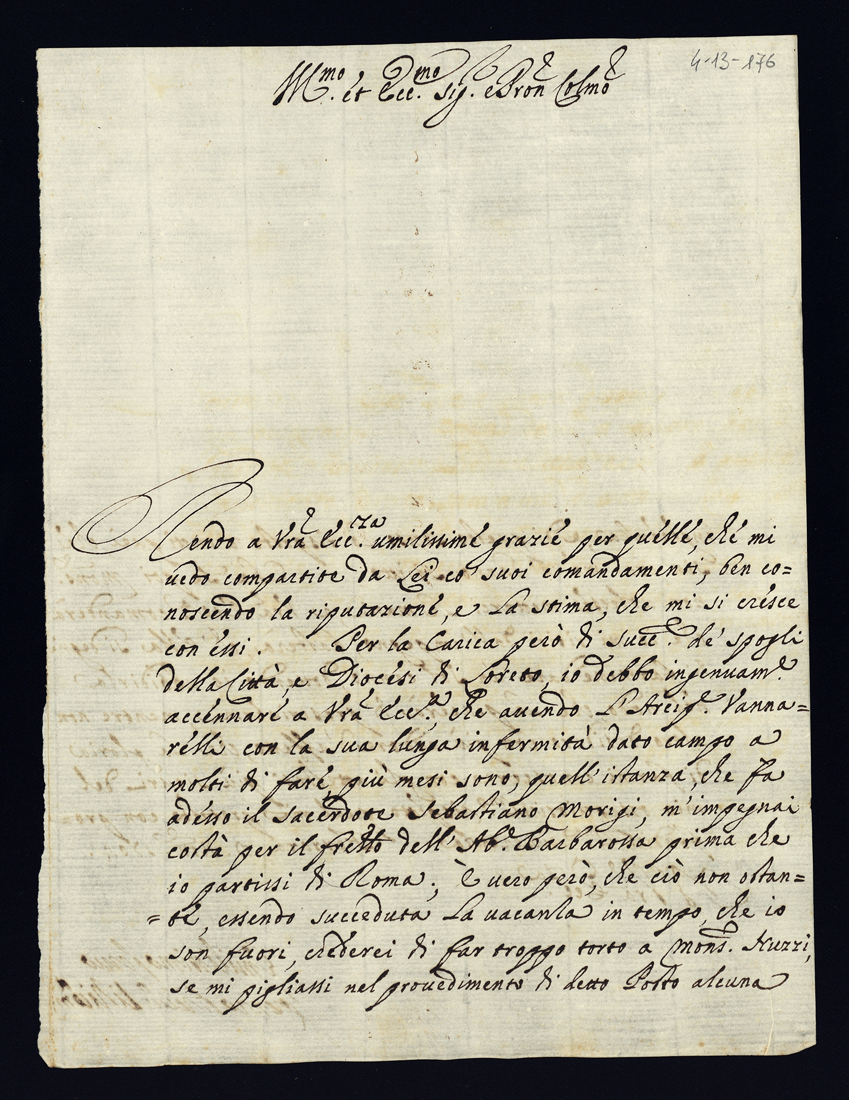 4-13-176
Ill.mo et Ecc.mo Sig.r e Pron Colmo
Rendo a Vrã Ecc.za umilissime grazie per quelle, che mi
vedo compartite da Lei co' suoi comandamenti, ben co=
noscendo la riputazione, e la stima, che mi si cresce
con essi. Per la Carica però di Succ.e de' spogli
della Città, e Diocesi di Loreto, io debbo ingenuam.e
accennare a Vrã Ecc.za, che avendo l'Arcip.e Vanna=
relli con la sua lunga infermità dato campo a
molti di fare, più mesi sono, quell'istanza, che fa
adesso il sacerdote Sebastiano Morigi, m'impegnai
costà per il fretto dell'Ab.e Barbarossa prima che
io partissi di Roma; È vero però, che ciò non ostan=
=te, essendo succeduta la vacanza in tempo, che io
son fuori, crederei di far troppo torto a Mons.r Nuzzi,
se mi pigliassi nel provedimento di detto Posto alcuna